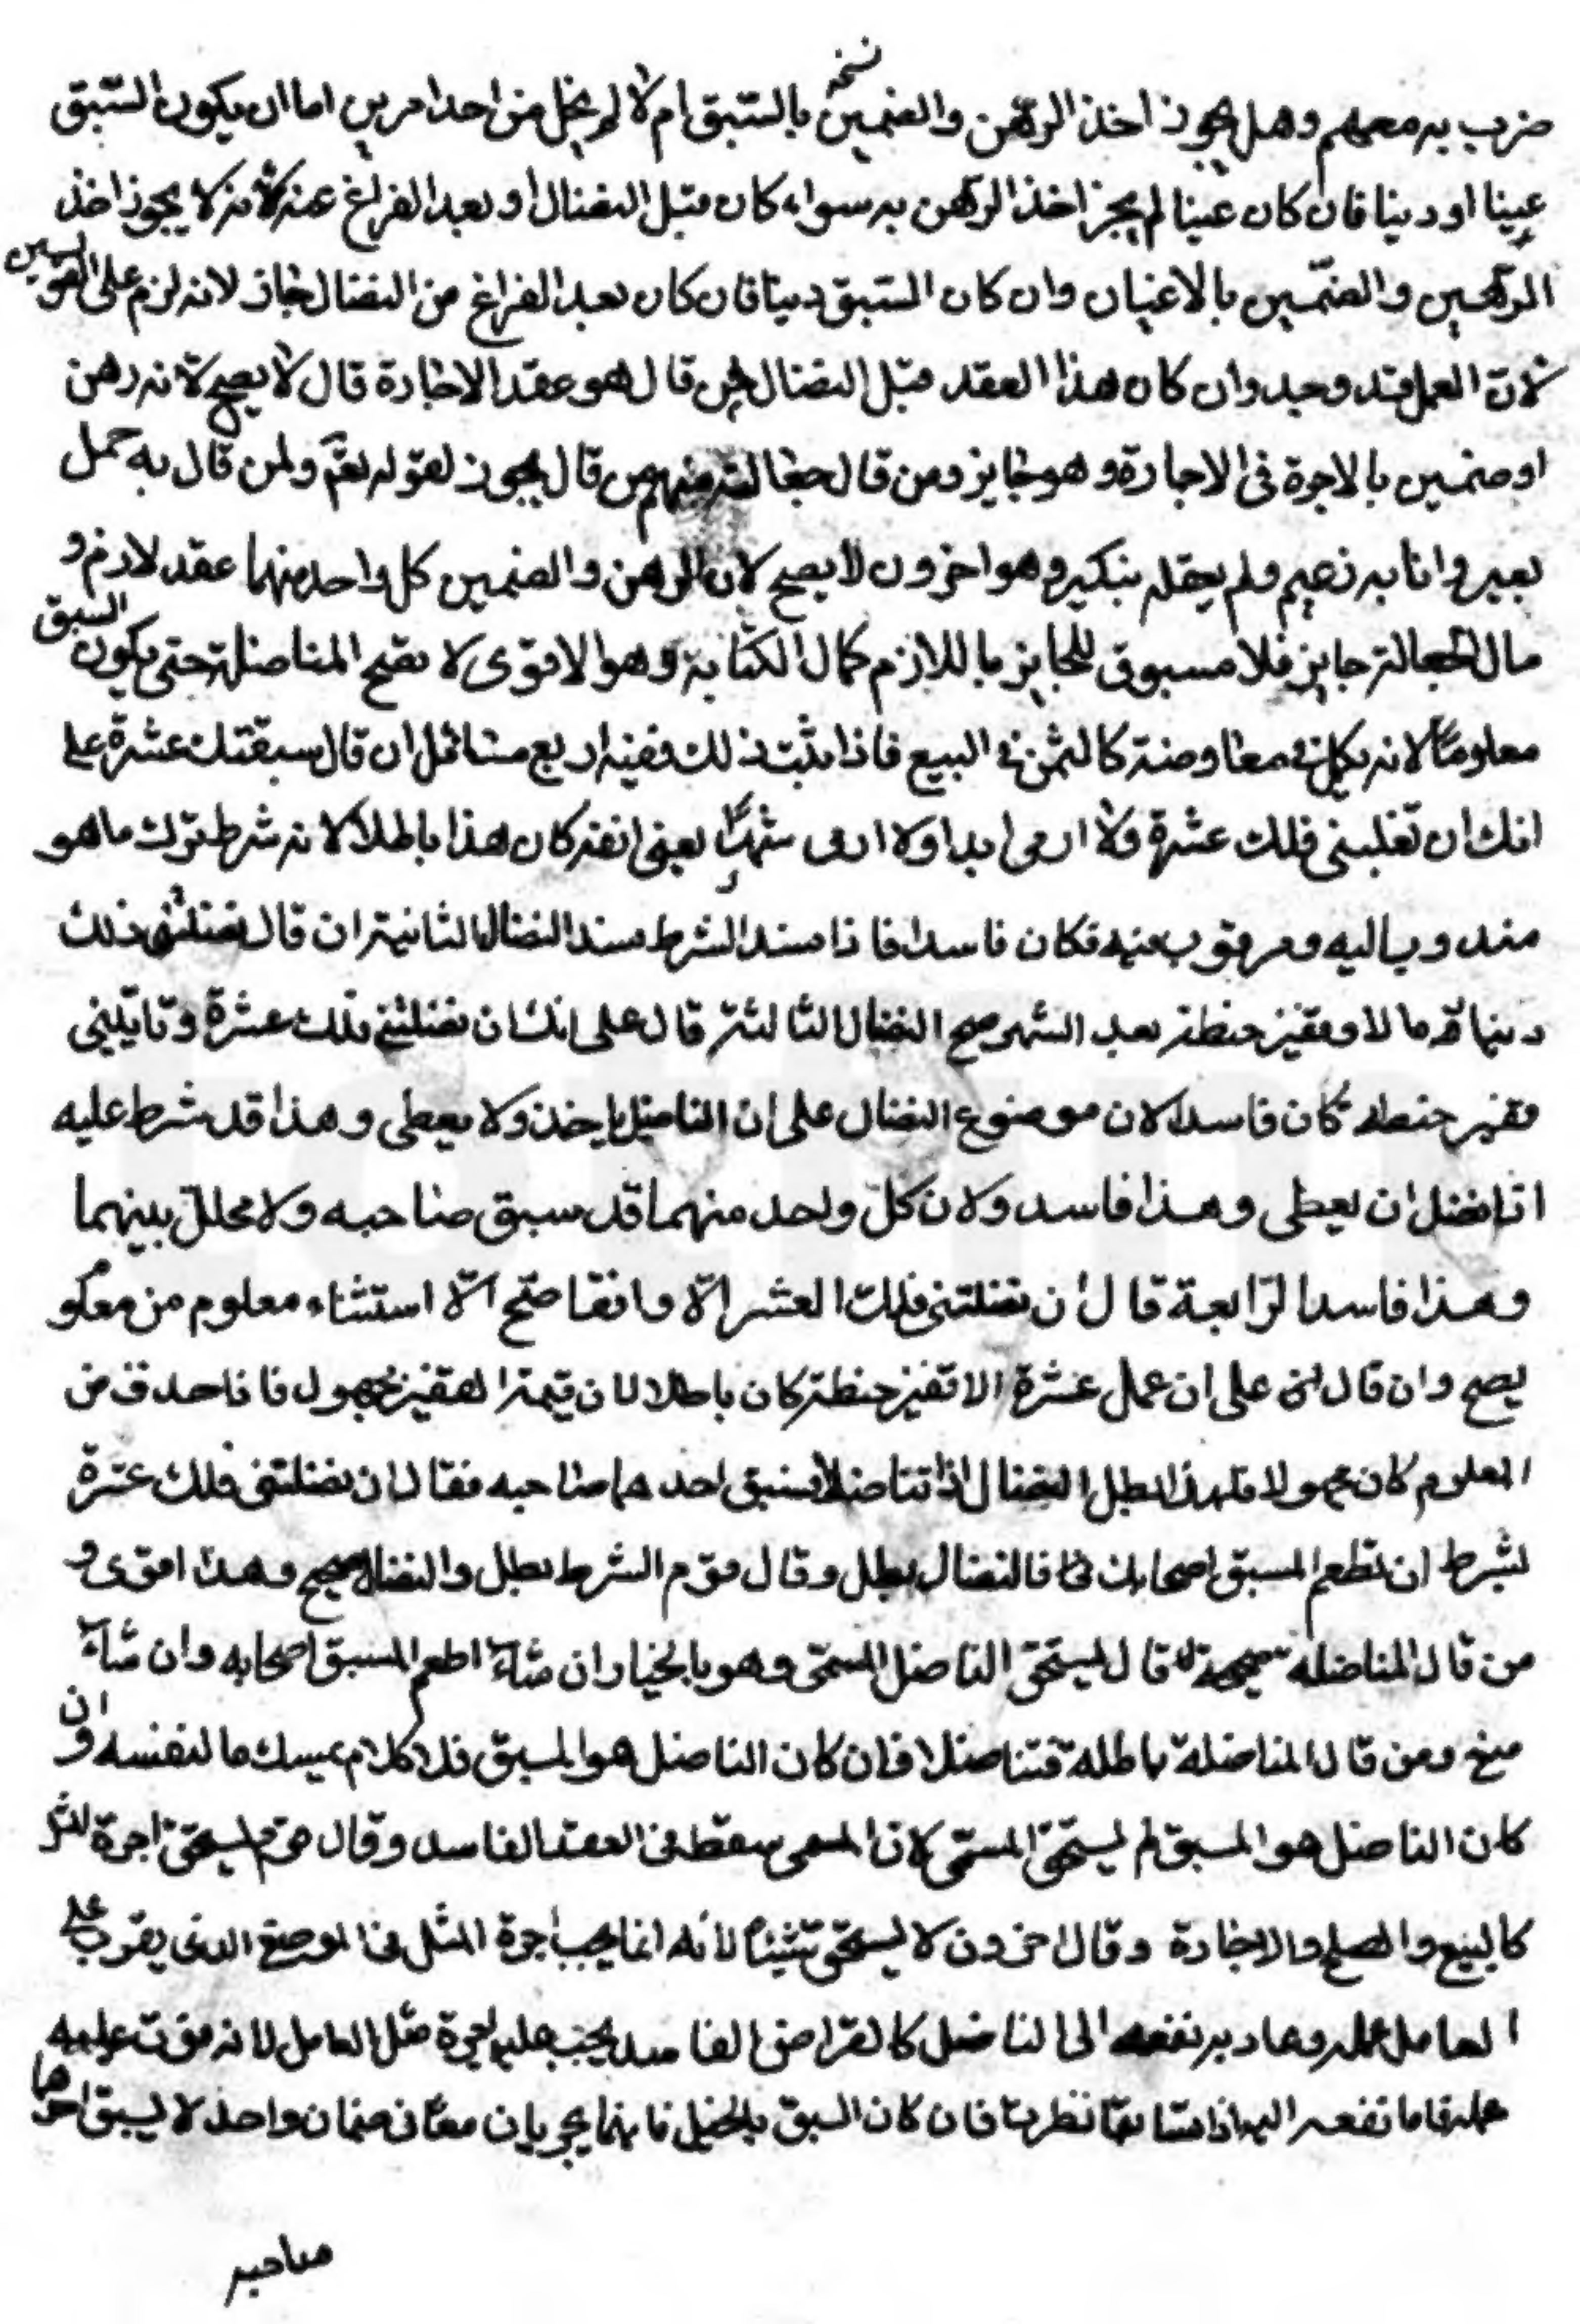 نسخه
ضرب به معهم وهل يجوز اخذ الرهن والضمين بالسبق ام لا لم يخل من احد امرين اما ان يكون السبق
عينا او دينا فان كان عينا لم يجز اخذ الرهن به سواء كان قبل النضال او بعد الفراغ عنه لانه لا يجوز اخذ
الرهين والضمين بالاعيان وان كان السبق دينا فان كان بعد الفراغ من النضال جاز لانه لزم على
لان العمل قد وجد وان كان هذا العقد قبل النضال فمن قال هو عقد الاجارة قال لا يصح لانه رهن
او ضمين بالاجرة في الاجارة وهو جايز ومن قال جعالة فمنهم من قال يجوز لقوله تعم ولمن قال به حمل
بعير وانا به زعيم ولم يعقله بنكير وهو اخرون لا يصح لان الرهن والضمين كل واحد منهما عقد لازم و
مال الجعالة جايز فلا مسبوق للجايز باللازم كمال الكتابة وهو الاقوى لا تصح المناضلة حتى يكون السبق
معلوما لانه في معاوضة كالثمن في البيع فاذا ثبت ذلك ففيه اربع مسائل ان قال سبقتك عشرة على
انك ان تغلبني فلك عشرة ولا ارمى ابدا ولا ارمى شهرا يعني انفة كان هذا باطلا لانه شرط ترك ما هو
مندوب اليه ومرغوب فيه فكان فاسدا فاذا فسد الشرط فسد النضال الثانية ان قال نضلتني فلك
دينها مالا وقفيز حنطة بعد الشهر صح النضال الثالثة قال على انك ان نضلتني فلك عشرة وتاتيني
قفيز حنطة كان فاسدا لان موضوع النضال على ان الناضل ياخذ ولا يعطى وهذا قد شرط عليه
اذا نضل ان يعطى وهذا فاسد ولان كل واحد منهما قد سبق صاحبه ولا محلل بينهما
وهذا فاسد الرابعة قال ان نضلتني فلك العشر الا دانقا صح الا استثناء معلوم من معلو
يصح وان قال على ان عمل عشرة الا قفيز حنطة كان باطلا لان قيمة القفيز مجهول فاذا حذف من
المعلوم كان مجهولا فلهذا ابطل النضال اذا تناضلا فسبق احدهما صاحبه فقال ان نضلتني فلك عشرة
بشرط ان تطعم السبق اصحابك فالنضال يبطل وقال قوم الشرط يبطل والنضال صحيح وهذا اقوى و
من قال المناضلة صحيحة قال يستحق الناضل المسمى وهو بالخيار ان شاء اطعم السبق اصحابه وان شاء
منع ومن قال المناضلة باطلة فتناضلا فان كان الناضل هو المسبق فلا كلام يمسك ما لنفسه وان
كان الناضل هو المسبق لم يستحق المسمى لان المسمى سقط في العقد الفاسد وقال قوم يستحق اجرة المثل
كالبيع والصلح والاجارة وقال اخرون لا يستحق شيئا لانه انما يجب اجرة المثل في الموضع الذي يفوت على
العامل عمله وعاد به نفعه الى الناضل كالقراض الفاسد يجب عليه اجرة مثل العامل لانه فوت عليه
عمله فاما نفعه اليه اذا تسابقا نظرت فان كان السبق بالخيل فانهما يجريان معا في ضمان واحد لا يسبق احدهما
صاحبه